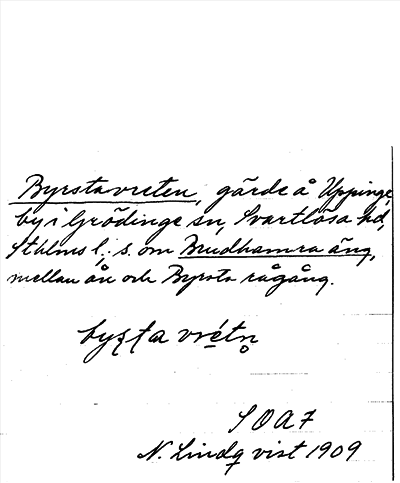 Byrstavreten, gärde å Uppinge,
by i Grödinge sn, Svartlösa hd,
Sthlms l.: s. om Brudhamra äng,
mellan ån och Byrsta rågång.
byʂʈa vrétn̥
SOA 7
N. Lindqvist 1909